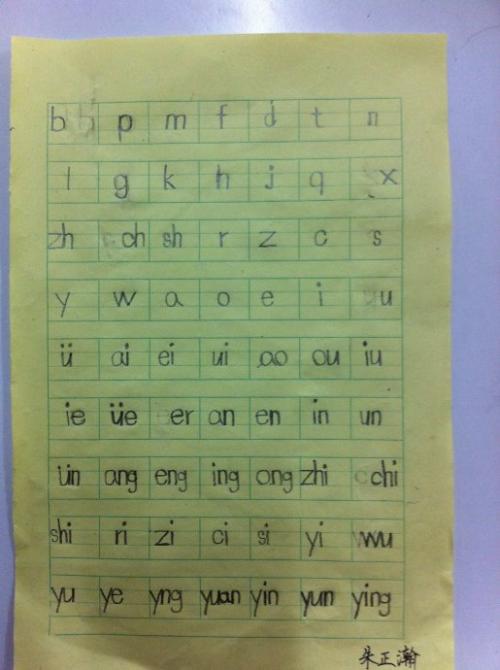 b p m f d t n
l g k h j q x
zh ch sh r z c s
y w a o e i u
ü ai ei ui ao ou iu
ie üe er an en in un
ün ang eng ing ong zhi chi
shi ri zi ci si yi wu
yu ye yng yuan yin yun ying
朱正瀚